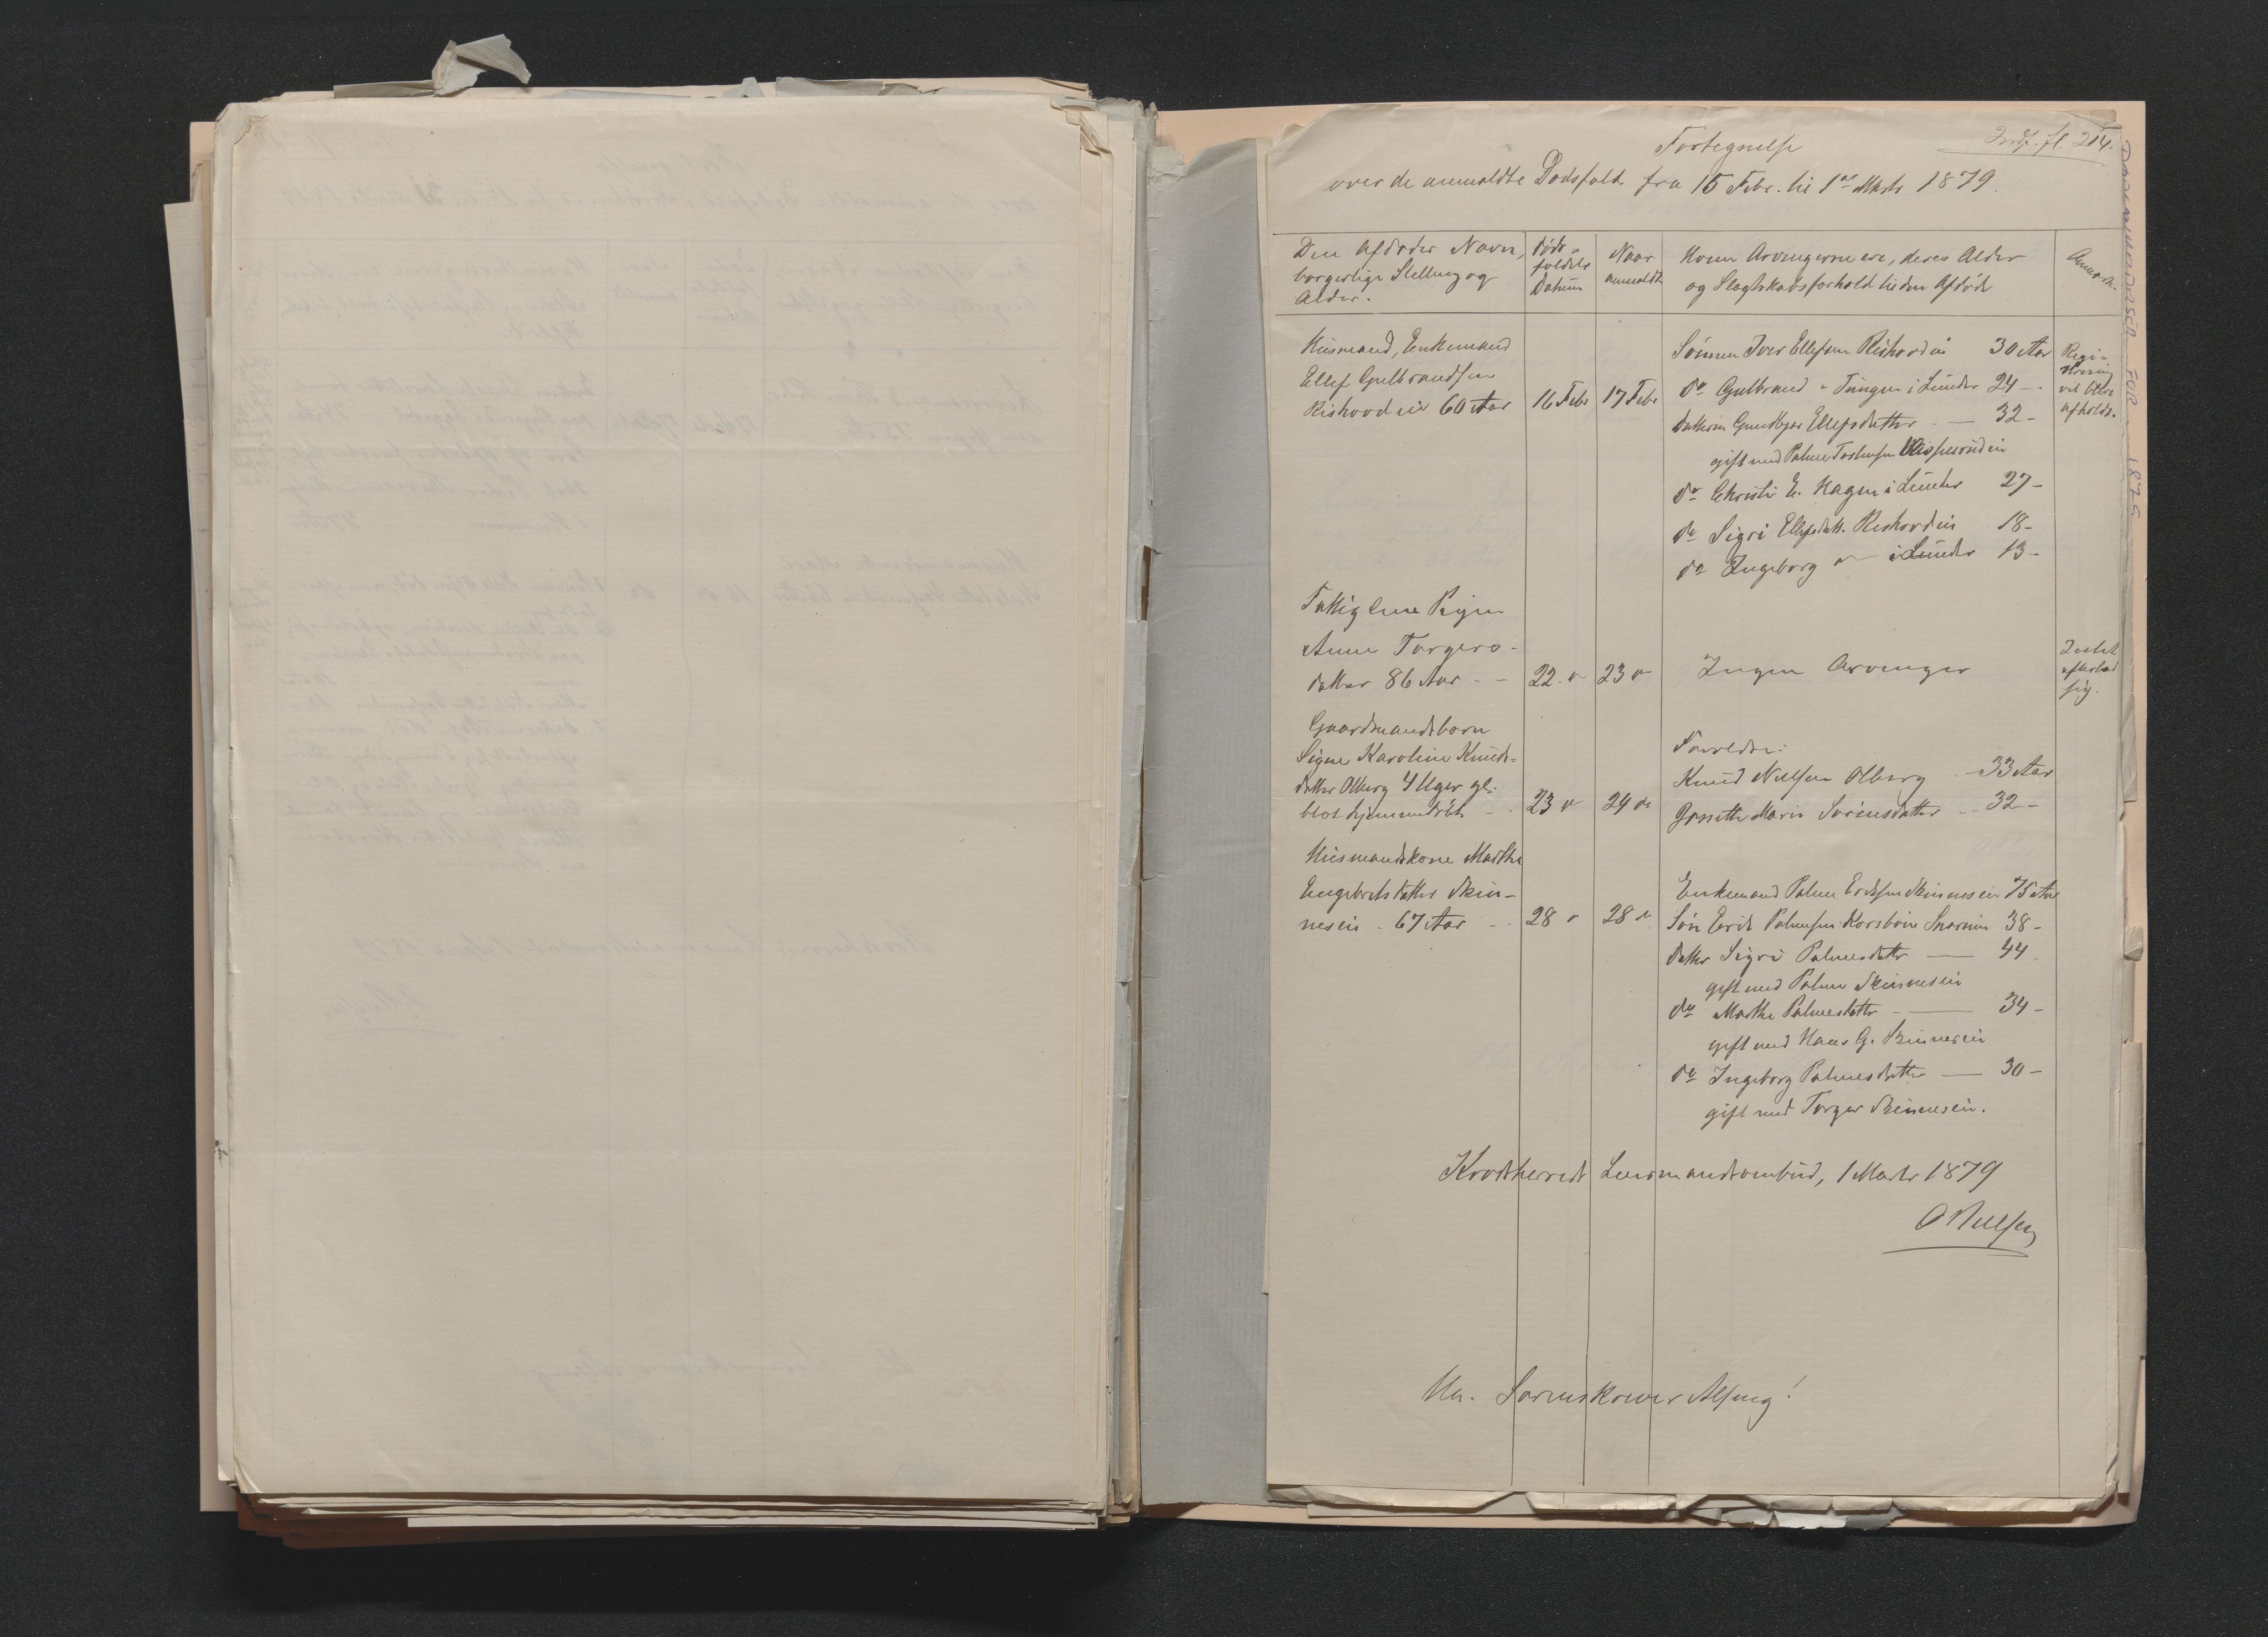 Indf. fl. 254.
Fortegnelse
over de anmeldte Dødsfald fra 15 Febr. til 1ste Marts 1879.
Den Afdødes Navn,
borgerlige Stilling og
Alder.
Døds-
faldets
Datum
Naar
anmeldt
Hvem Arvingerne ere, deres Alder
og Slægtskabsforhold til den Afdøde
Anmærk.
Husmand, Enkemand
Ellef Gulbrandsen
Rishovdeie 60 Aar
16 Febr
17 Febr
Sønnen Iver Ellefsen Rishovdei 30 Aar
do Gulbrand - Tungen i Lunder 24 -
Datteren Ellefsdatter - 32 -
gift med Palme
do Christi E. Hagen i Lunder 27 -
do Sigri Ellefsdatt. Rishovdei 18 -
do Ingeborg " i Lunder 13 -
Regi-
strering
vil blive
afholdt.
Fattiglem Pigen
Anne Torgers-
datter 86 Aar -
22 "
23 "
Ingen Arvinger
Intet
efterlad
sig.
Gaardmandsbarn
Signe Karoline Knuds-
datter Olberg 4 Uger gl.
blot hjemmedøbt -
23 "
24 "
Forældre:
Knud Nilsen Olberg - 33 Aar
Marie Sørensdatter - 32 -
Husmandskone Marthe
Engebretsdatter Skin-
nesei - 67 Aar -
28 "
28 "
Enkemand Palme Eriksen Skinnesei 75 Aar
Søn Erik Palmesen Korsbøen Snarum 38 -
Datter Sigri Palmesdattr - 44
gift med Palme Skinnesei
do Marthe Palmesdattr - 34 -
gift med Hans G. Skinnesei
do Ingeborg Palmesdatter - 30 -
gift med Torger Skinnesei.
Krødsherreds Lensmandsombud, 1 Marts 1879
O Nilsen
Hr. Sorenskriver Alsing!
DØDSANMELDELSER FOR 1879